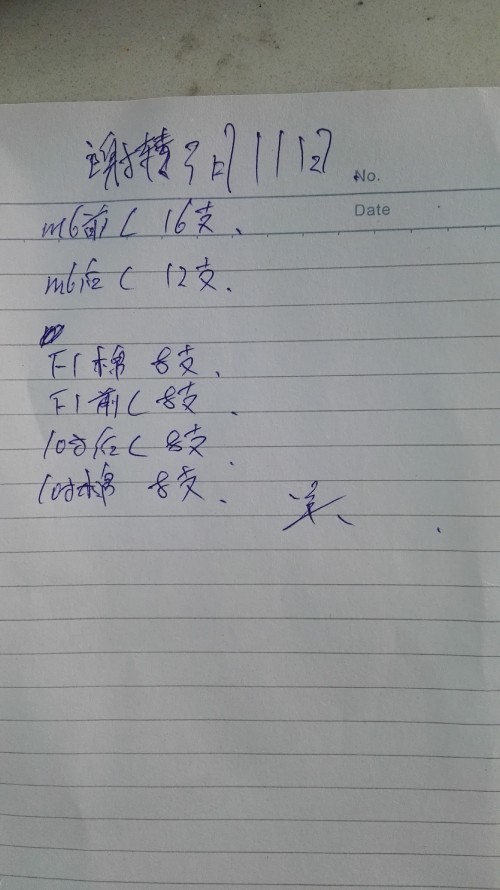 谢精3月11日
No.
Date
m6前C 16支、
m6后C 12支、
F1棉 8支、
F1前C 8支、
10寸后C 8支
10寸棉 8支、